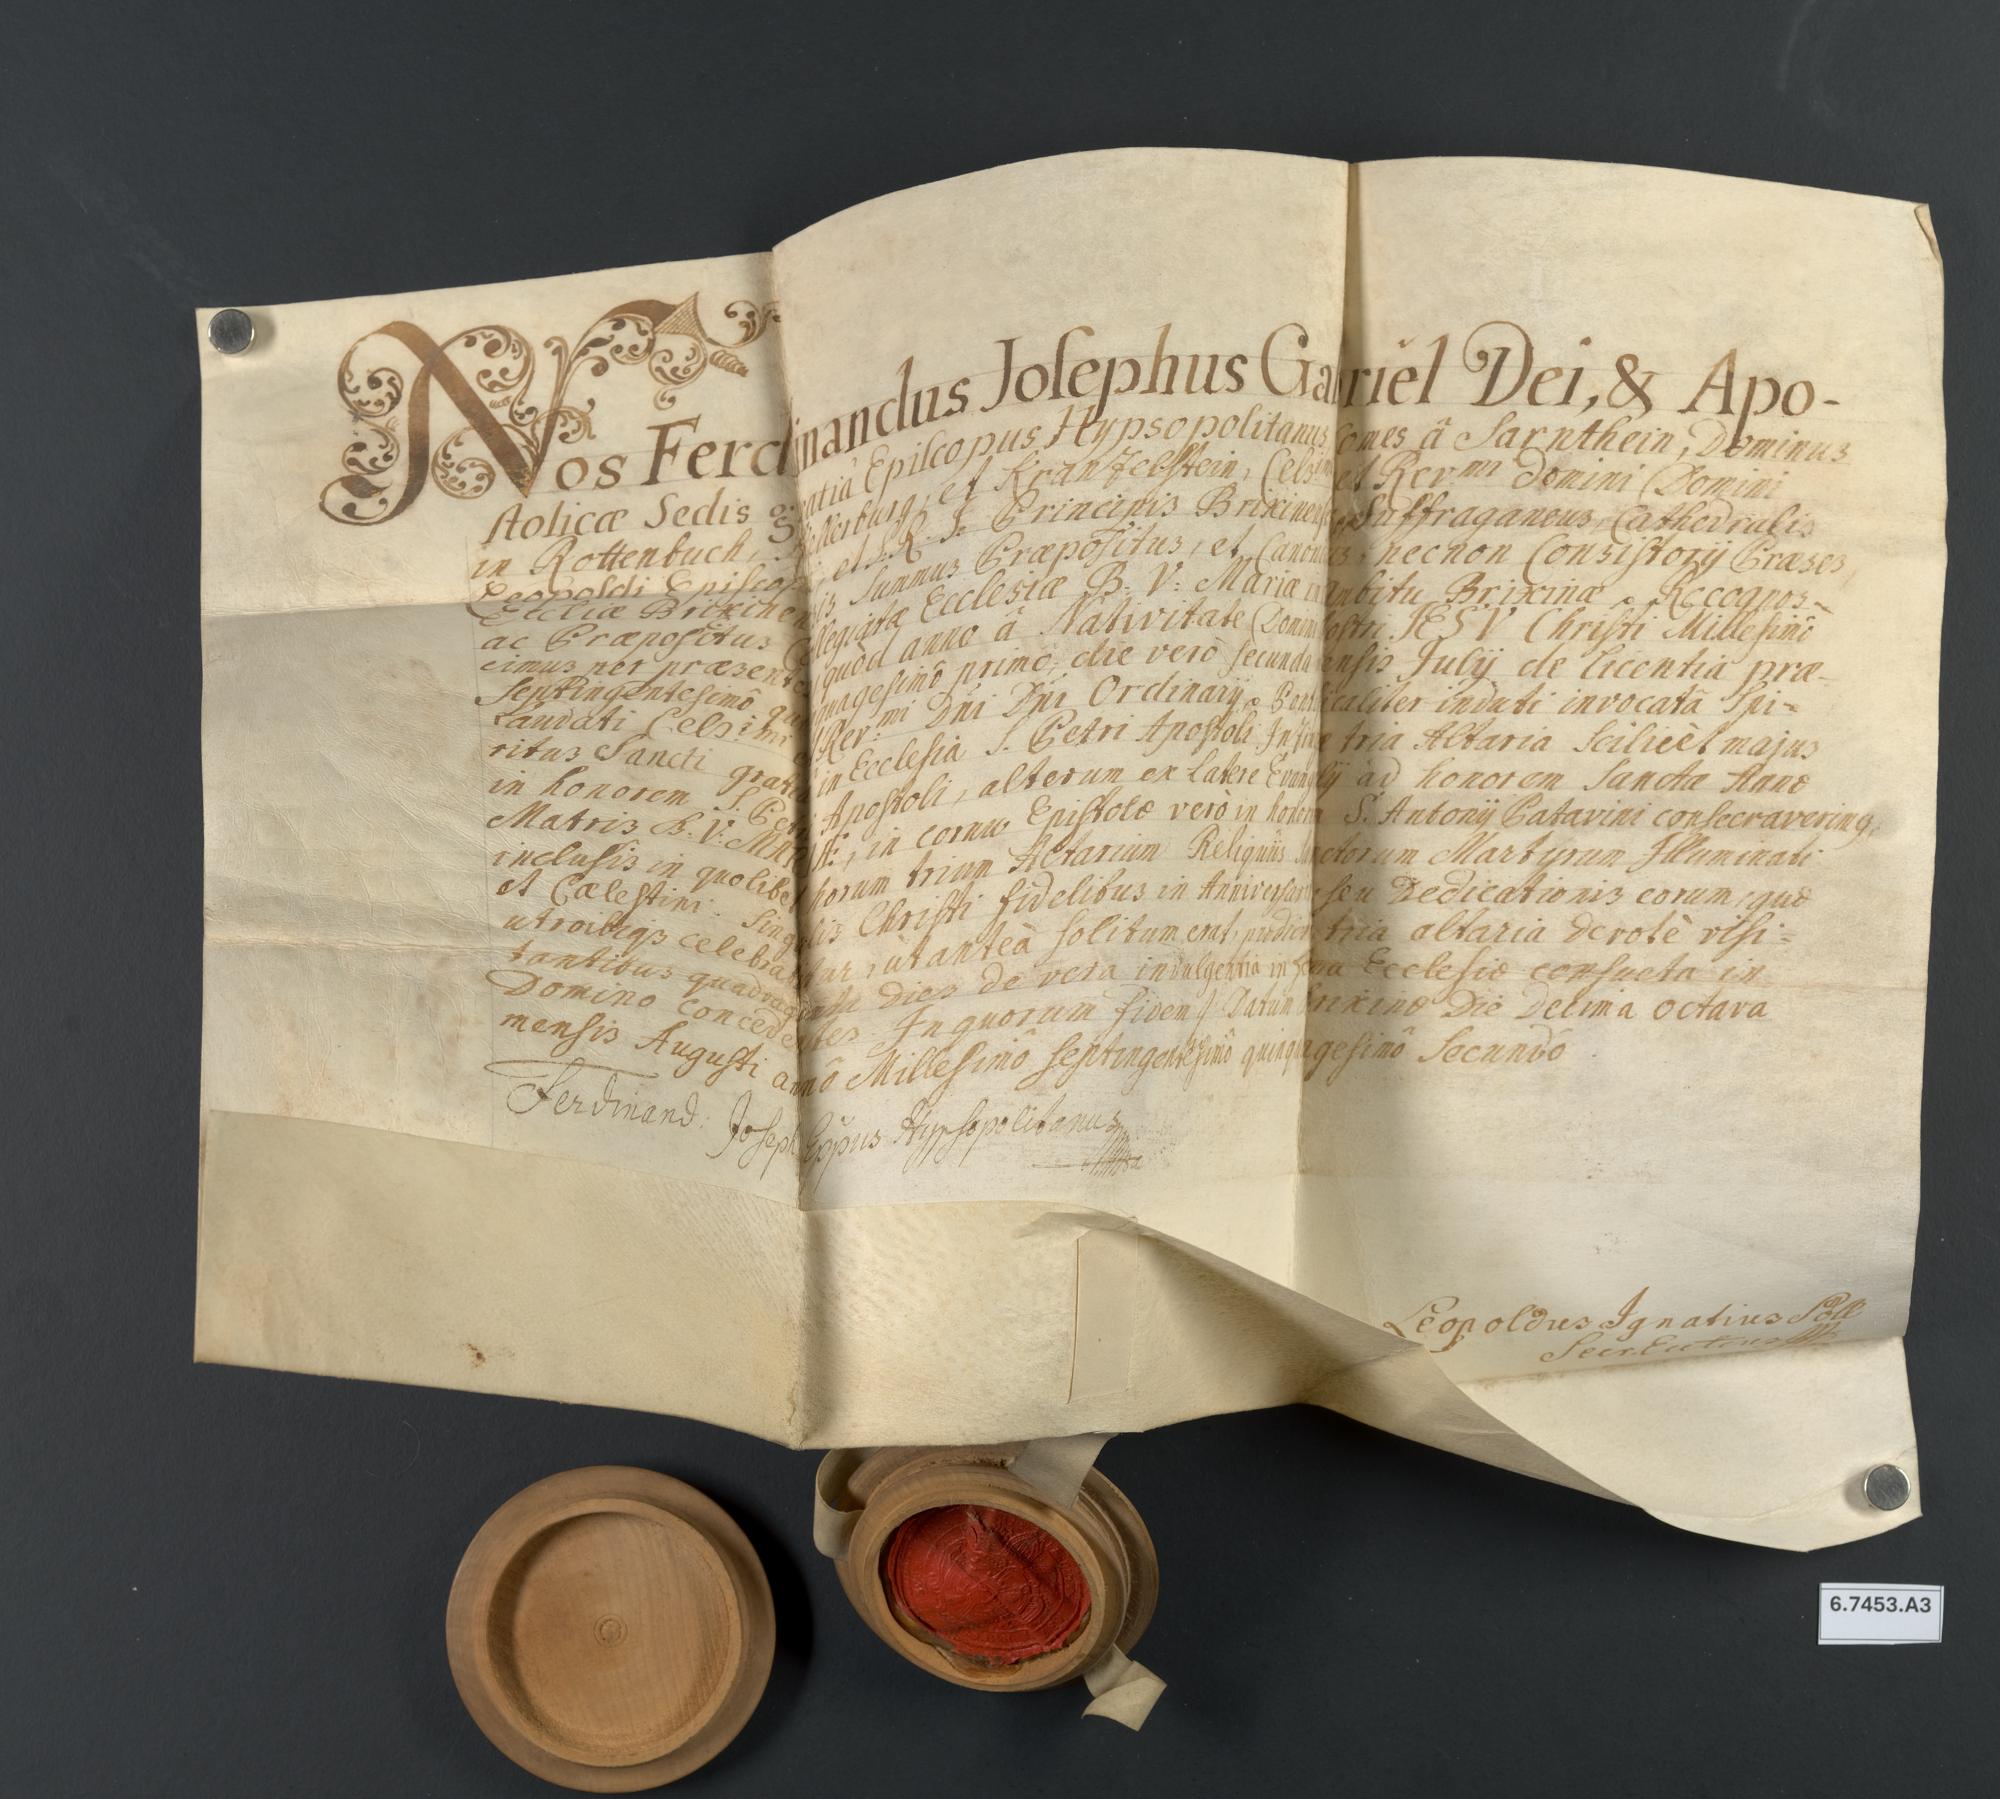 Nos Ferdinandus Josephus Gabriël Dei, & Apo-
stolicæ Sedis gratiâ Episcopus Hypsopolitanus Comes â Sarnthein, Dominus
in Rottenbuch, Kellerburg, et Kranzelstein, Celsimi et Rev:mi Domini Domini
Leopoldi Episcopi, et S. R. I. Principis Brixinensis Suffraganeus, Cathedralis
Eccliæ Brixinensis Summus Præpositus, et Canonicus, necnon Consistorij Præses,
ac Præpositus Collegiatæ Ecclesiæ B: V: Mariæ in ambitu Brixinæ. Recognos-
cimus per præsentes quòd anno â Nativitate Domini nostri JESV Christi Millesimô
Septingentesimô quinquagesimô primô, die verò secunda mensis Julij de licentia præ-
laudati Celsi:mi et Rev:mi Dñi Dñi Ordinarij, Pontificaliter induti invocatâ Spi-
ritus Sancti gratiâ in Ecclesia S. Petri Apostoli tria Altaria scilicèt majus
in honorem S. Petri Apostoli, alterum ex latere Evangelij ad honorem Sanctæ Annæ
Matris B. V: MARIÆ, in cornu Epistolæ verò in honorem S. Antonij Patavini consecraverimq,
inclusis in quolibet horum trium Altarium Reliquiis Sanctorum Martyrum Illuminati
et Cælestini. Singulis Christi fidelibus in Anniversario seu Dedicationis eorum, quæ
utroibiqs celebrabitur, ut anteà solitum erat, prædicta tria altaria devotè visi-
tantibus quadraginta Dies de vera indulgentia in forma Ecclesiæ consueta in
Domino concedentes. In quorum fidem Datum Brixinæ Die Decima octava
mensis Augusti annô Millesimô septingentesimô quinquagesimô Secundô
Ferdinand: Joseph Eppus Hypsopolitanus
Leopoldus Ignatius Pöll
6.7453.A3